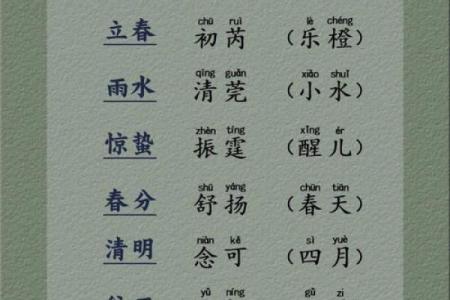 chū ruì lè chéng
立春 初芮 （乐橙）
qīng guǎn xiǎo shuǐ
雨水 清莞 （小水）
zhèn tíng xǐng ér
惊蛰 振霆 （醒儿）
shū yáng chūn tiān
春分 舒扬 （春天）
niàn kě sì yuè
清明 念可 （四月）
yǔ níng gǔ zi